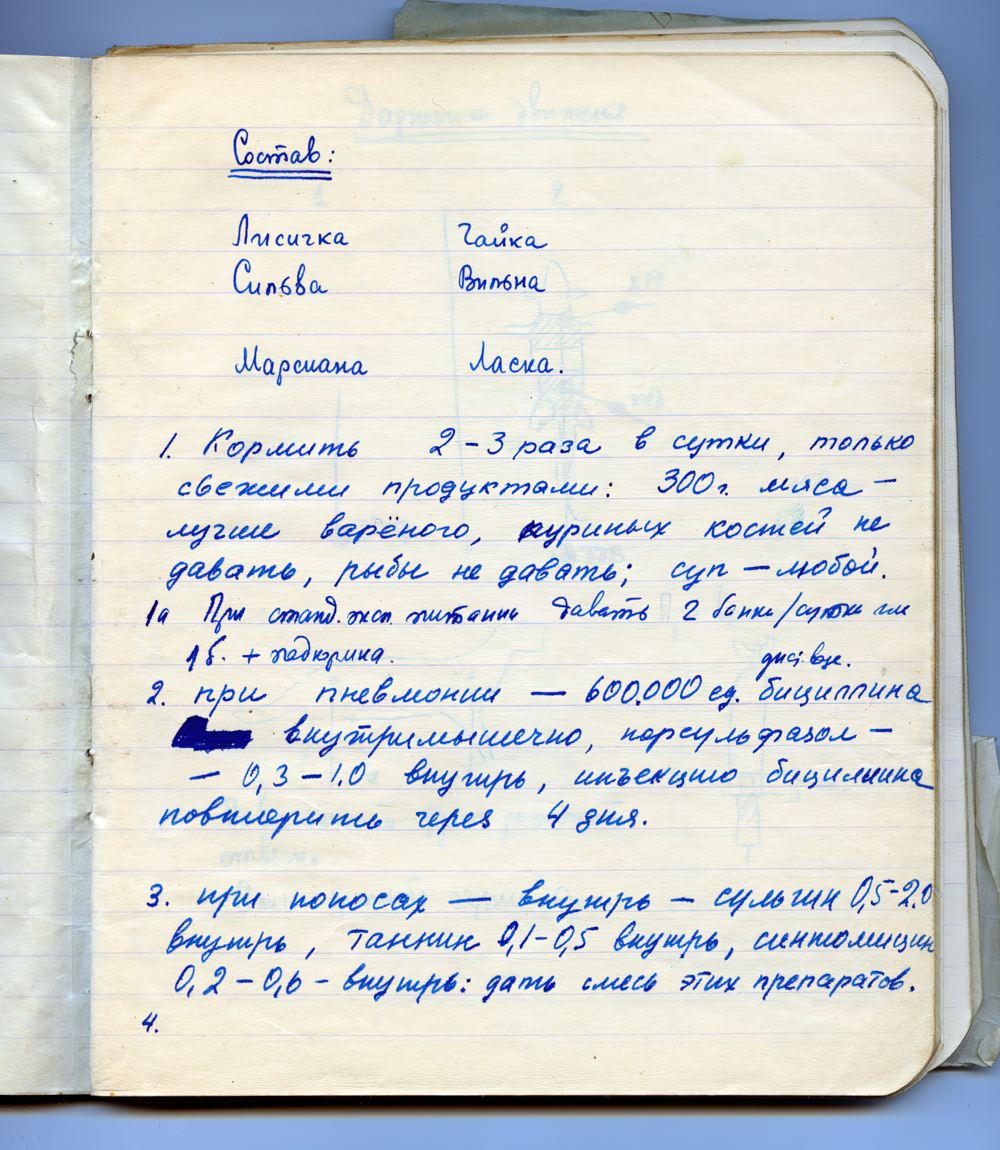 Состав:
Лисичка Чайка
Сильва Вильна
Марсиана Ласка.
1. Кормить 2-3 раза в сутки, только
свежими продуктами: 300г. мяса –
лучше варёного, куриных костей не
давать, рыбы не давать; суп – любой.
1а При станд. эксп. питании давать 2 банки/сутки или
1б. + подкормка.
2. при пневмонии – 600.000 ед. бициллина
внутримышечно, норсульфазол –
– 0,3 – 1.0 внутрь, инъекцию бициллина
повторить через 4 дня.
3. при поносах – внутрь – сульгин 0,5-2.0
внутрь, таннин 0,1-0,5 внутрь, синтомицин
0,2-0,6 - внутрь: дать смесь этих препаратов.
4.